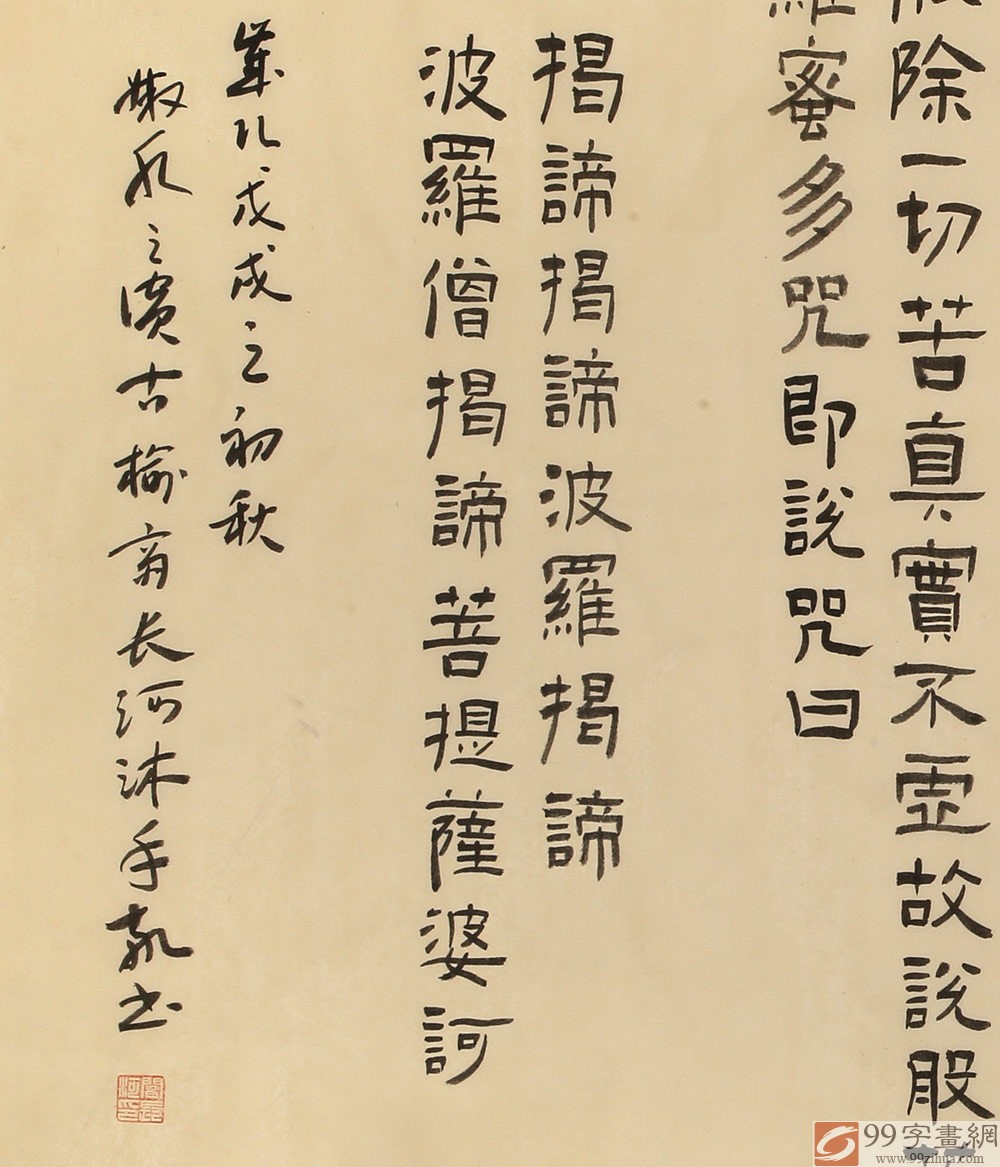 除一切苦真實不虛故說般
羅蜜多咒即說咒曰
揭諦揭諦波羅揭諦
波羅僧揭諦菩提薩婆訶
歲次戊戌之初秋
嫩水之濱古榆齋长河沐手敬书
閻長河印
99字畫網
www.99zihua.com